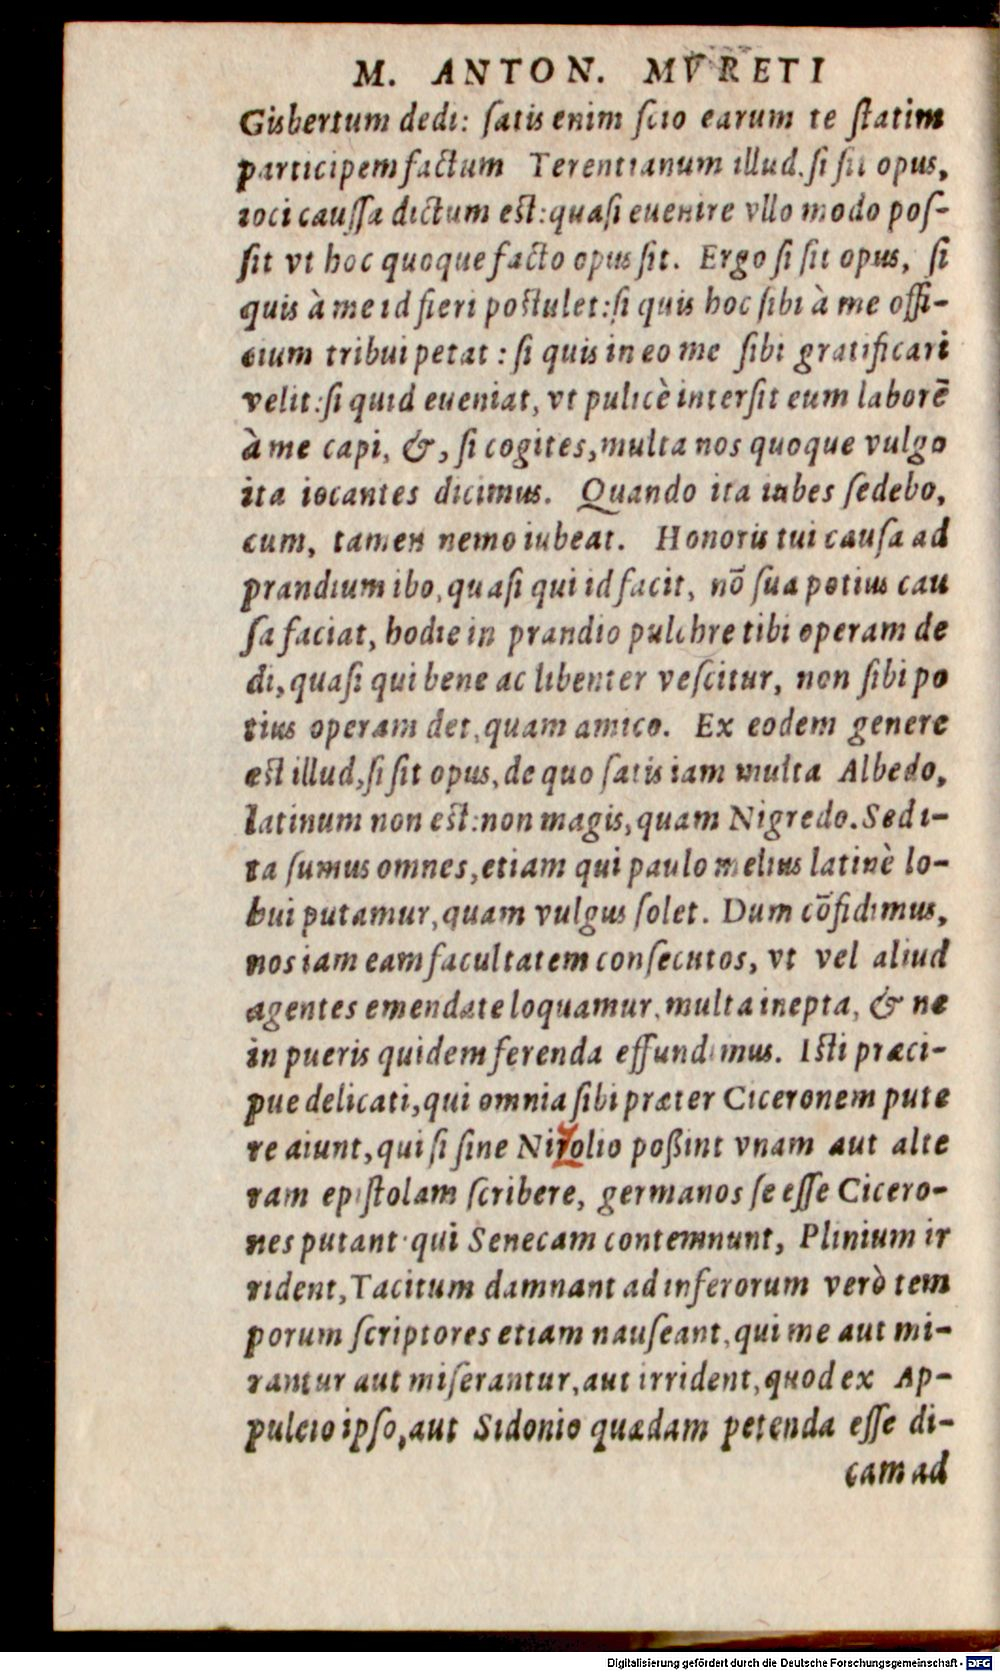 M. ANTON. MVRETI
Gisbertum dedi: ſatis enim ſcio earum te ſtatim
participem factum Terentianum illud. ſi ſit opus,
ioci cauſſa dictum est: quaſi euenire vllo modo poſ-
ſit vt hoc quoque facto opus ſit. Ergo ſi ſit opus, ſi
quis à me id fieri poſtulet: ſi quis hoc ſibi à me offi-
cium tribui petat : ſi quis in eo me ſibi gratificari
velit: ſi quid eueniat, vt pulicè interſit eum laborē
à me capi, &, ſi cogites, multa nos quoque vulgo
ita iocantes dicimus. Quando ita iubes ſedebo,
cum, tamen nemo iubeat. Honoris tui cauſa ad
prandium ibo, quaſi qui id facit, nō ſua potius cau
ſa faciat, hodie in prandio pulchre tibi operam de
di, quaſi qui bene ac libenter veſcitur, non ſibi po
tius operam det, quam amico. Ex eodem genere
est illud, ſi ſit opus, de quo ſatis iam multa Albedo,
latinum non est: non magis, quam Nigredo. Sed i-
ta ſumus omnes, etiam qui paulo melius latinè lo-
bui putamur, quam vulgus ſolet. Dum cōfidimus,
nos iam eam facultatem conſecutos, vt vel aliud
agentes emendate loquamur, multa inepta, & ne
in pueris quidem ferenda effundimus. Isti præci-
pue delicati, qui omnia ſibi præter Ciceronem pute
re aiunt, qui ſi ſine Nizolio poßint vnam aut alte
ram epiſtolam ſcribere, germanos ſe eſſe Cicero-
nes putant qui Senecam contemnunt, Plinium ir
rident, Tacitum damnant ad inferorum verò tem
porum ſcriptores etiam nauſeant, qui me aut mi-
rantur aut miſerantur, aut irrident, quod ex Ap-
puleio ipſo, aut Sidonio quædam petenda eſſe di-
cam ad
Digitalisierung gefördert durch die Deutsche Forschungsgemeinschaft - DFG